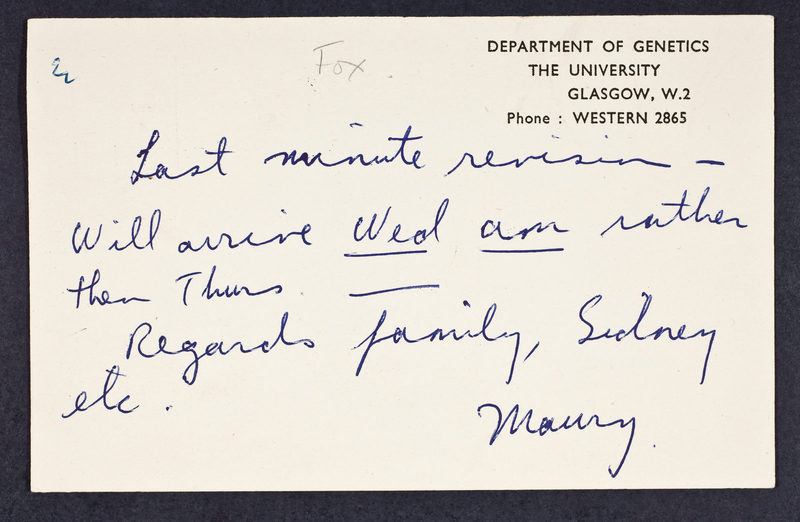 Fox
DEPARTMENT OF GENETICS
THE UNIVERSITY
GLASGOW, W.2
Phone : WESTERN 2865
Last minute revision –
Will arrive Wed am rather
then Thurs. —
Regards family, Sidney
etc.
Maury.